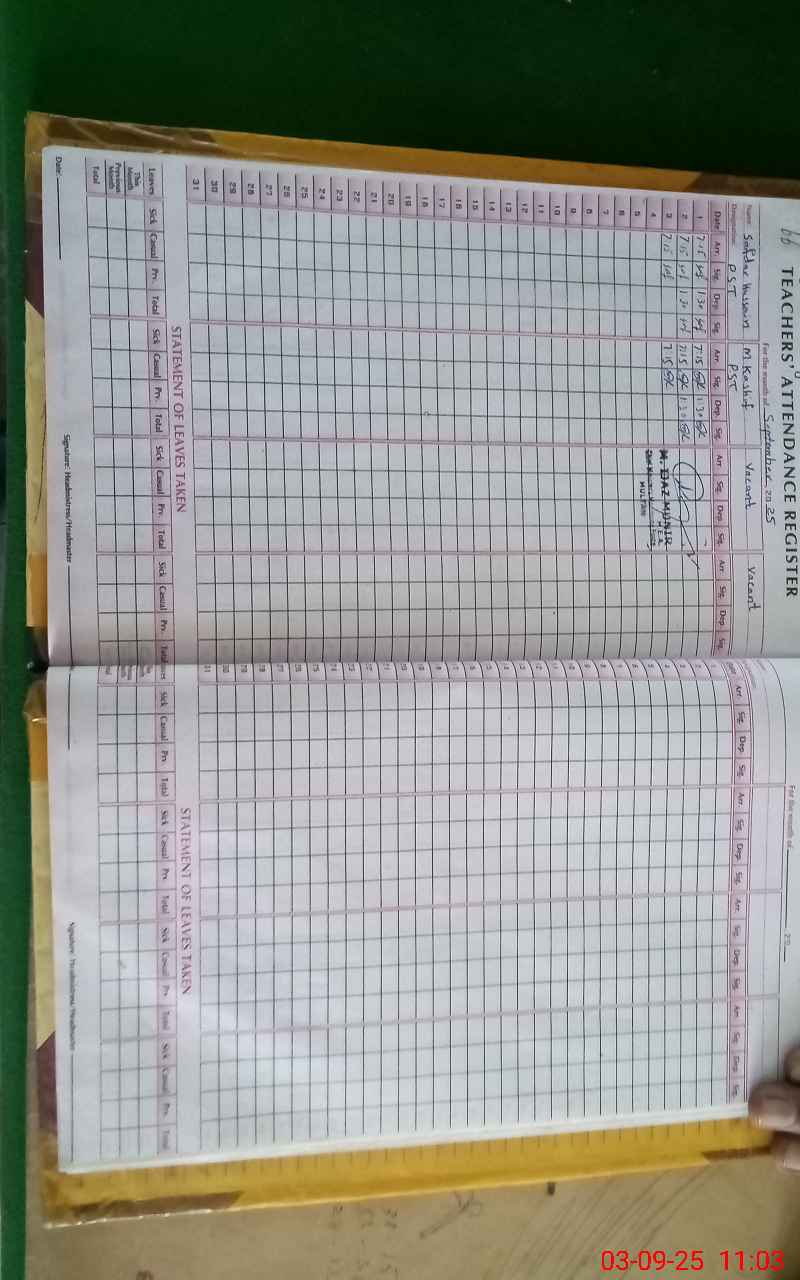 66
TEACHERS' ATTENDANCE REGISTER
For the month of September 2025
Name Safdar Hussain M. Kashif Vacant Vacant
Designation PST PST
Date Arr. Sig. Dep. Sig. Arr. Sig. Dep. Sig. Arr. Sig. Dep. Sig. Arr. Sig. Dep. Sig.
1 7:15 1:30 7:15 1:30
2 7:15 1:30 7:15 1:30
3 7:15 7:15
4
5
6
7
8
9
10
11
12
13
14
15
16
17
18
19
20
21
22
23
24
25
26
27
28
29
30
31
M. IJAZ MUNIR
MULTAN
STATEMENT OF LEAVES TAKEN
Leaves Sick Casual Prv. Total Sick Casual Prv. Total Sick Casual Prv. Total Sick Casual Prv. Total
This Month
Previous Month
Total
Date: Signature: Headmistress/Headmaster
For the month of 20
Arr. Sig. Dep. Sig. Arr. Sig. Dep. Sig. Arr. Sig. Dep. Sig. Arr. Sig. Dep. Sig.
STATEMENT OF LEAVES TAKEN
Sick Casual Prv. Total Sick Casual Prv. Total Sick Casual Prv. Total Sick Casual Prv. Total
Signature: Headmistress/Headmaster
03-09-25 11:03